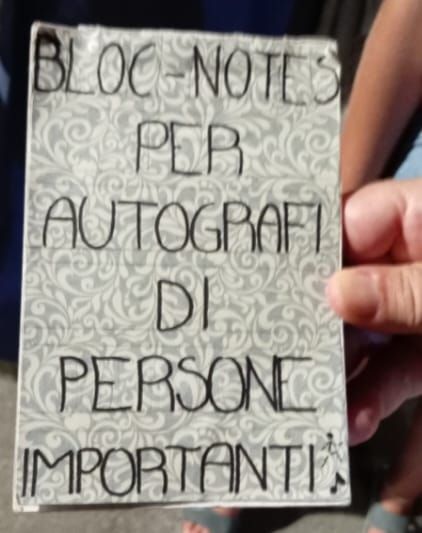 BLOC-NOTES
PER
AUTOGRAFI
DI
PERSONE
IMPORTANTI